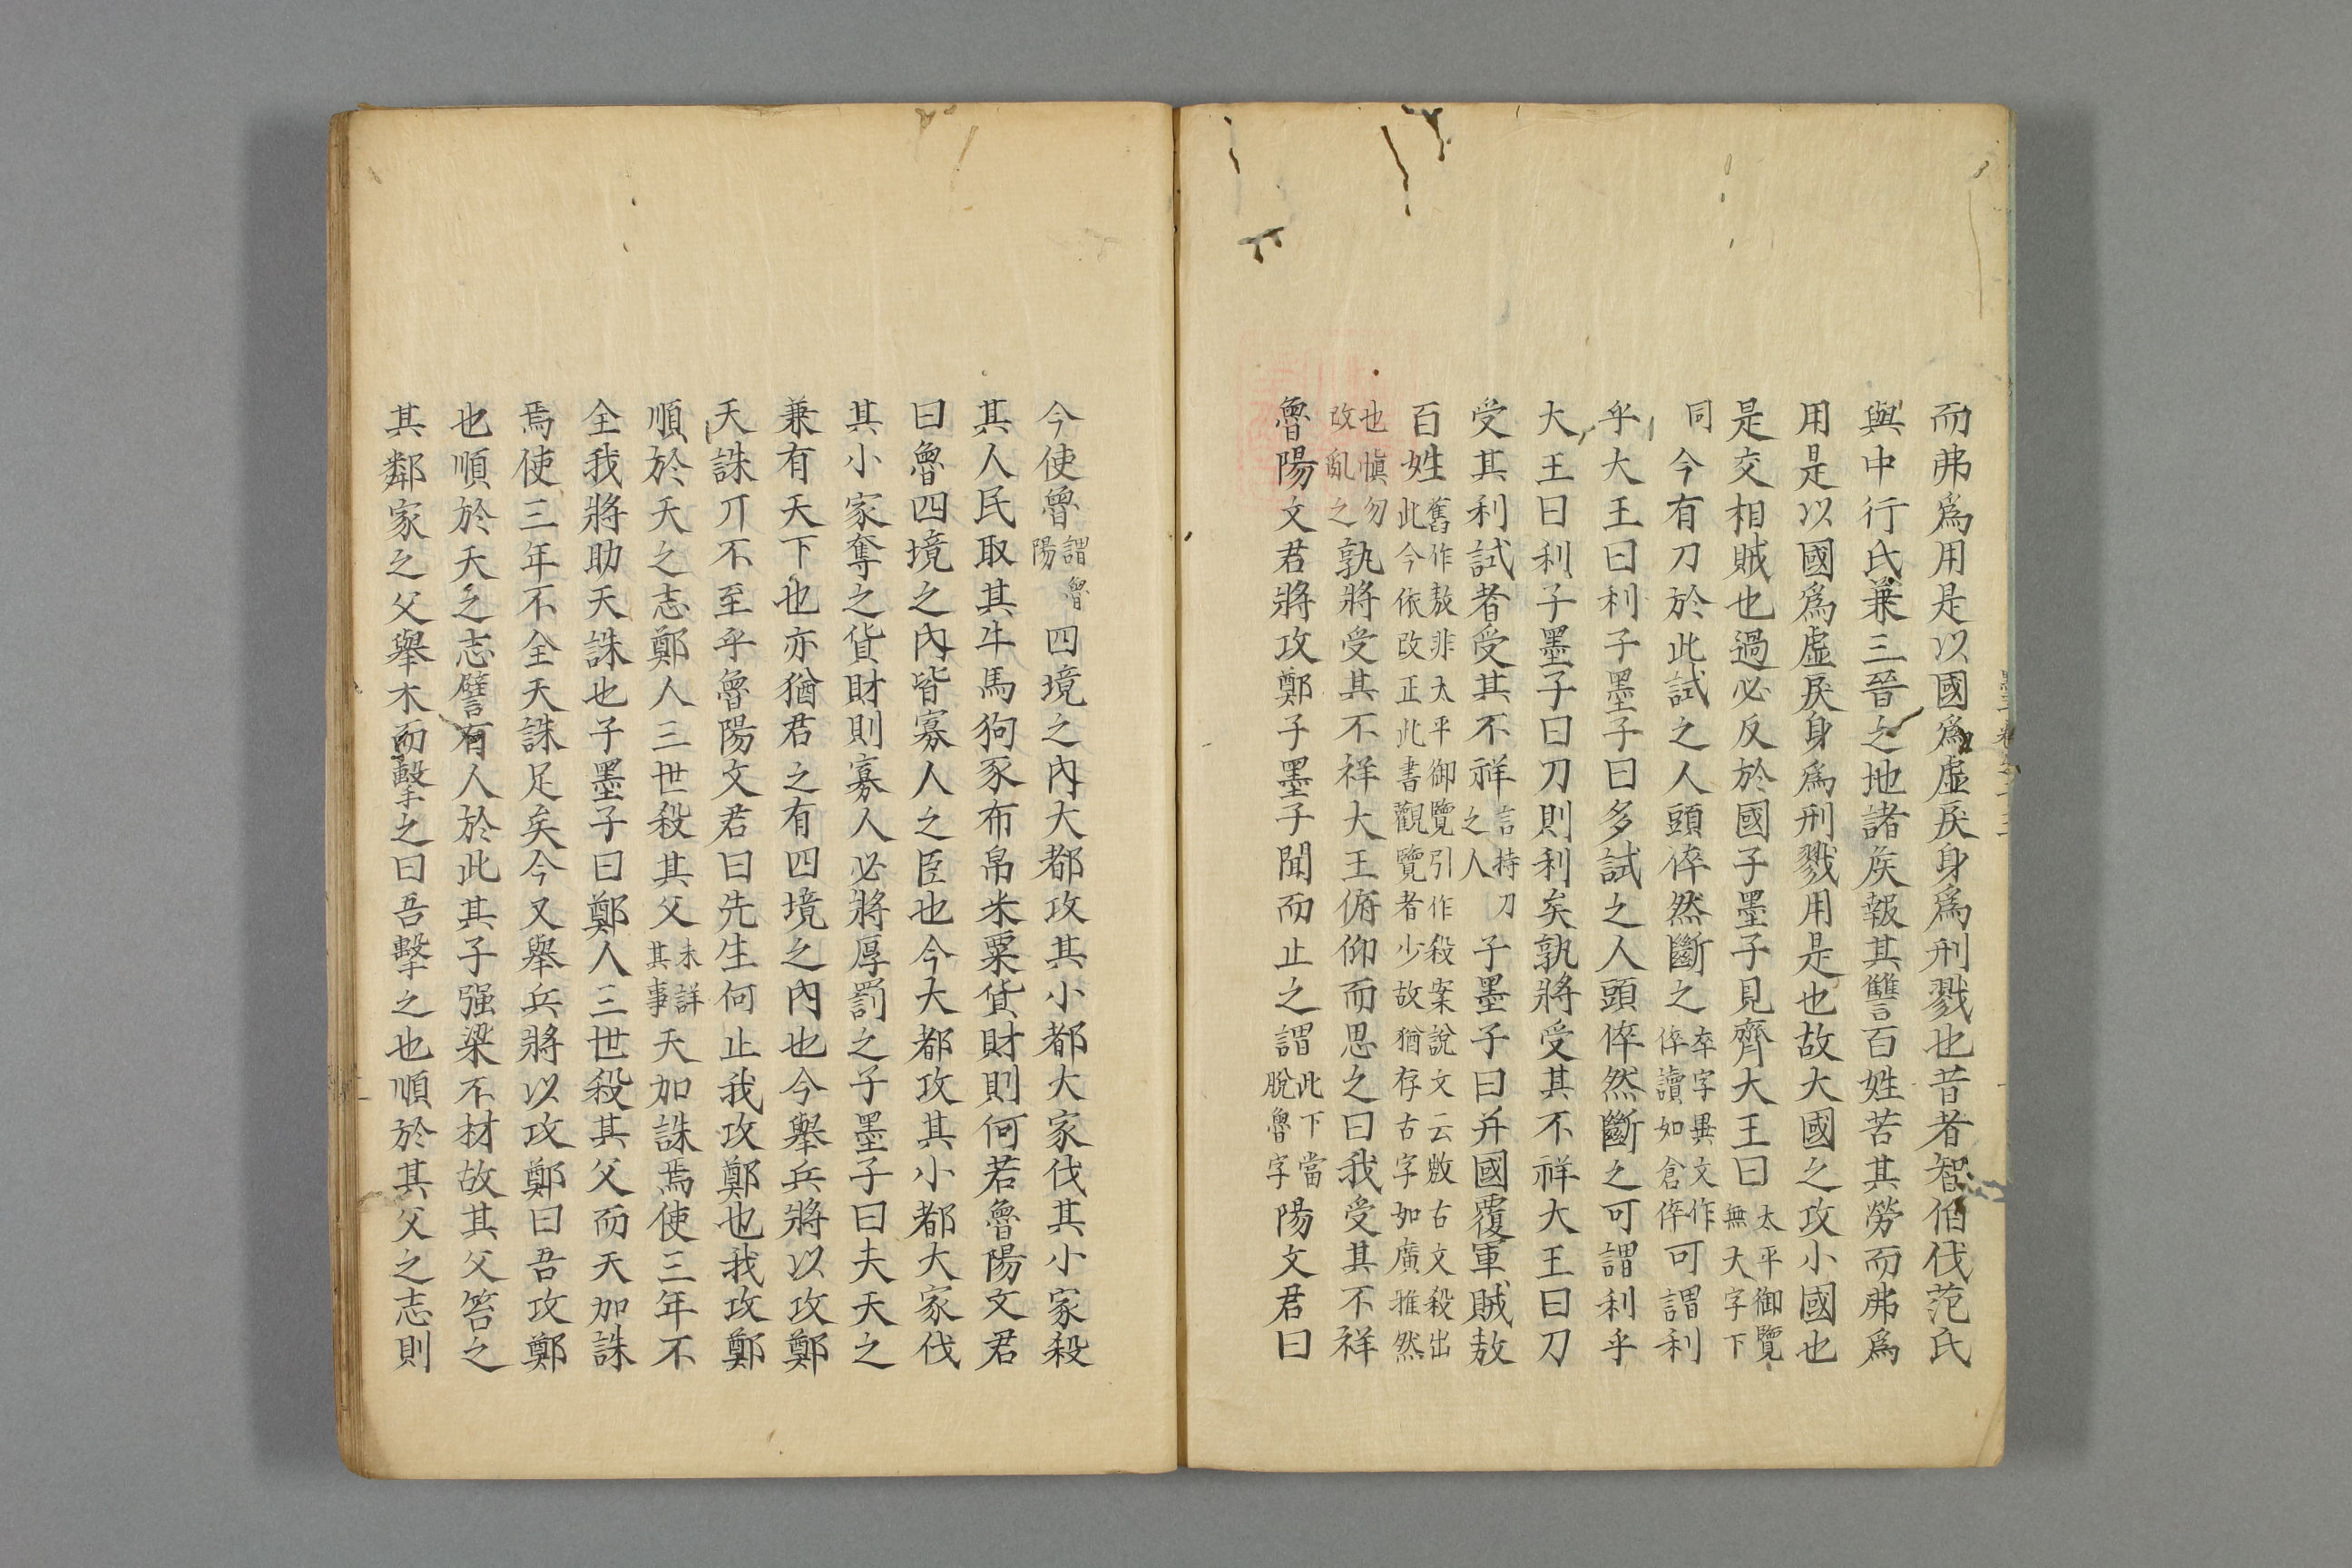 而弗爲用是以國爲虛戾身爲刑戮也昔者智伯伐范氏
與中行氏兼三晉之地諸矦報其讐百姓苦其勞而弗爲
用是以國爲虛戾身爲刑戮用是也故大國之攻小國也
是交相賊也過必反於國子墨子見齊大王曰太平御覽無大字下
同今有刀於此試之人頭倅然斷之卒字異文作倅讀如倉倅可謂利
乎大王曰利子墨子曰多試之人頭倅然斷之可謂利乎
大王曰利子墨子曰刀則利矣孰將受其不祥大王曰刀
受其利試者受其不祥言持刀之人子墨子曰并國覆軍賊敖
百姓舊作敖非太平御覽引作殺案說文云敫古文殺出此今依改正此書觀覽者少故猶存古字如廣雅然
也愼勿改亂之孰將受其不祥大王俯仰而思之曰我受其不祥
魯陽文君將攻鄭子墨子聞而止之謂此下當脫魯字陽文君曰
今使魯謂魯陽四境之內大都攻其小都大家伐其小家殺
其人民取其牛馬狗豕布帛米粟貨財則何若魯陽文君
曰魯四境之內皆寡人之臣也今大都攻其小都大家伐
其小家奪之貨財則寡人必將厚罰之子墨子曰夫天之
兼有天下也亦猶君之有四境之內也今舉兵將以攻鄭
天誅丌不至乎魯陽文君曰先生何止我攻鄭也我攻鄭
順於天之志鄭人三世殺其父未詳其事天加誅焉使三年不
全我將助天誅也子墨子曰鄭人三世殺其父而天加誅
焉使三年不全天誅足矣今又舉兵將以攻鄭曰吾攻鄭
也順於天之志譬有人於此其子强梁不材故其父笞之
其鄰家之父舉木而擊之曰吾擊之也順於其父之志則